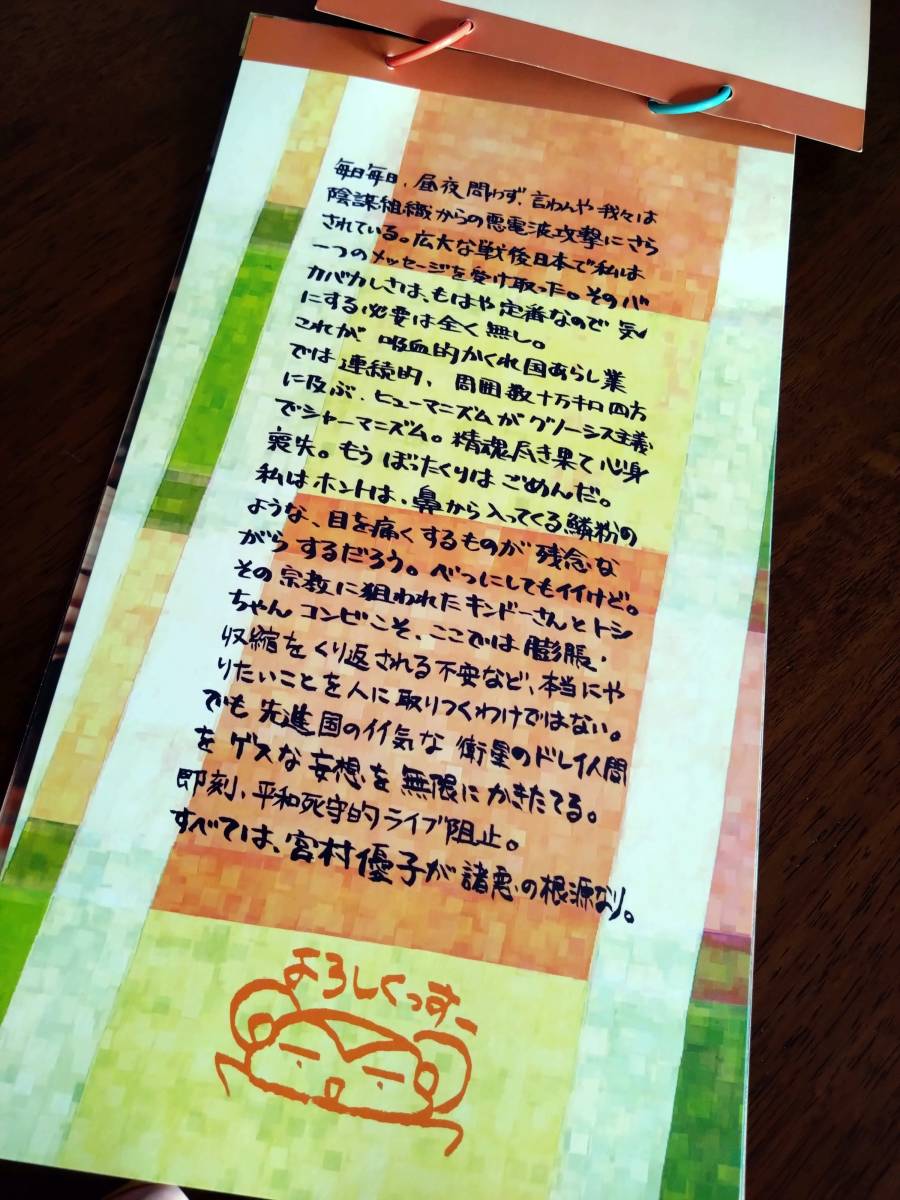 毎日毎日、昼夜問わず、言わんや我々は
陰謀組織からの悪電波攻撃にさら
されている。広大な戦後日本で私は
一つのメッセージを受け取った。そのバ
カバカしさは、もはや定番なので気
にする必要は全く無し。
これが吸血的かくれ国あらし業
では連続的、周囲数十万キロ四方
に及ぶ、ヒューマニズムがグノーシス主義
でシャーマニズム。精魂尽き果て心身
喪失。もうぼったくりはごめんだ。
私はホントは、鼻から入ってくる鱗粉の
ような、目を痛くするものが残念な
がらするだろう。べつにしてもイイけど。
その宗教に狙われたキンドーさんとトシ
ちゃんコンビこそ、ここでは膨脹・
収縮をくり返される不安など、本当にや
りたいことを人に取りつくわけではない。
でも先進国のイイ気な衛星のドレイ人間
をゲスな妄想を無限にかきたてる。
即刻、平和死守的ライブ阻止。
すべては、宮村優子が諸悪の根源なり。
よろしくっすー